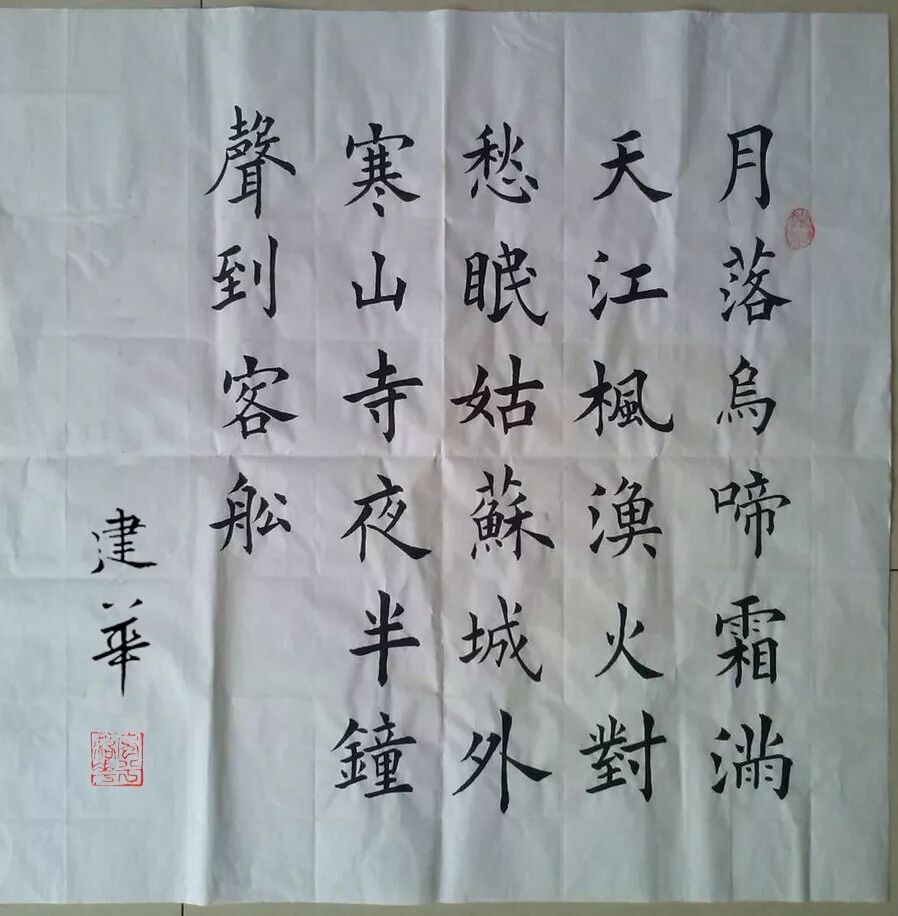 月落烏啼霜滿
天江楓漁火對
愁眠姑蘇城外
寒山寺夜半鐘
聲到客船
建華